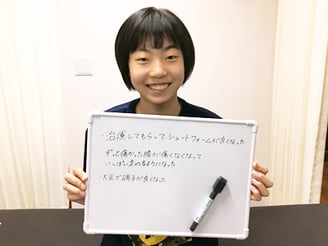 ・治療してもらってシュートフォームが良くなった
ずっと痛かった膝が痛くなくなって
いっぱい走れるようになった
・大会で調子が良くなった